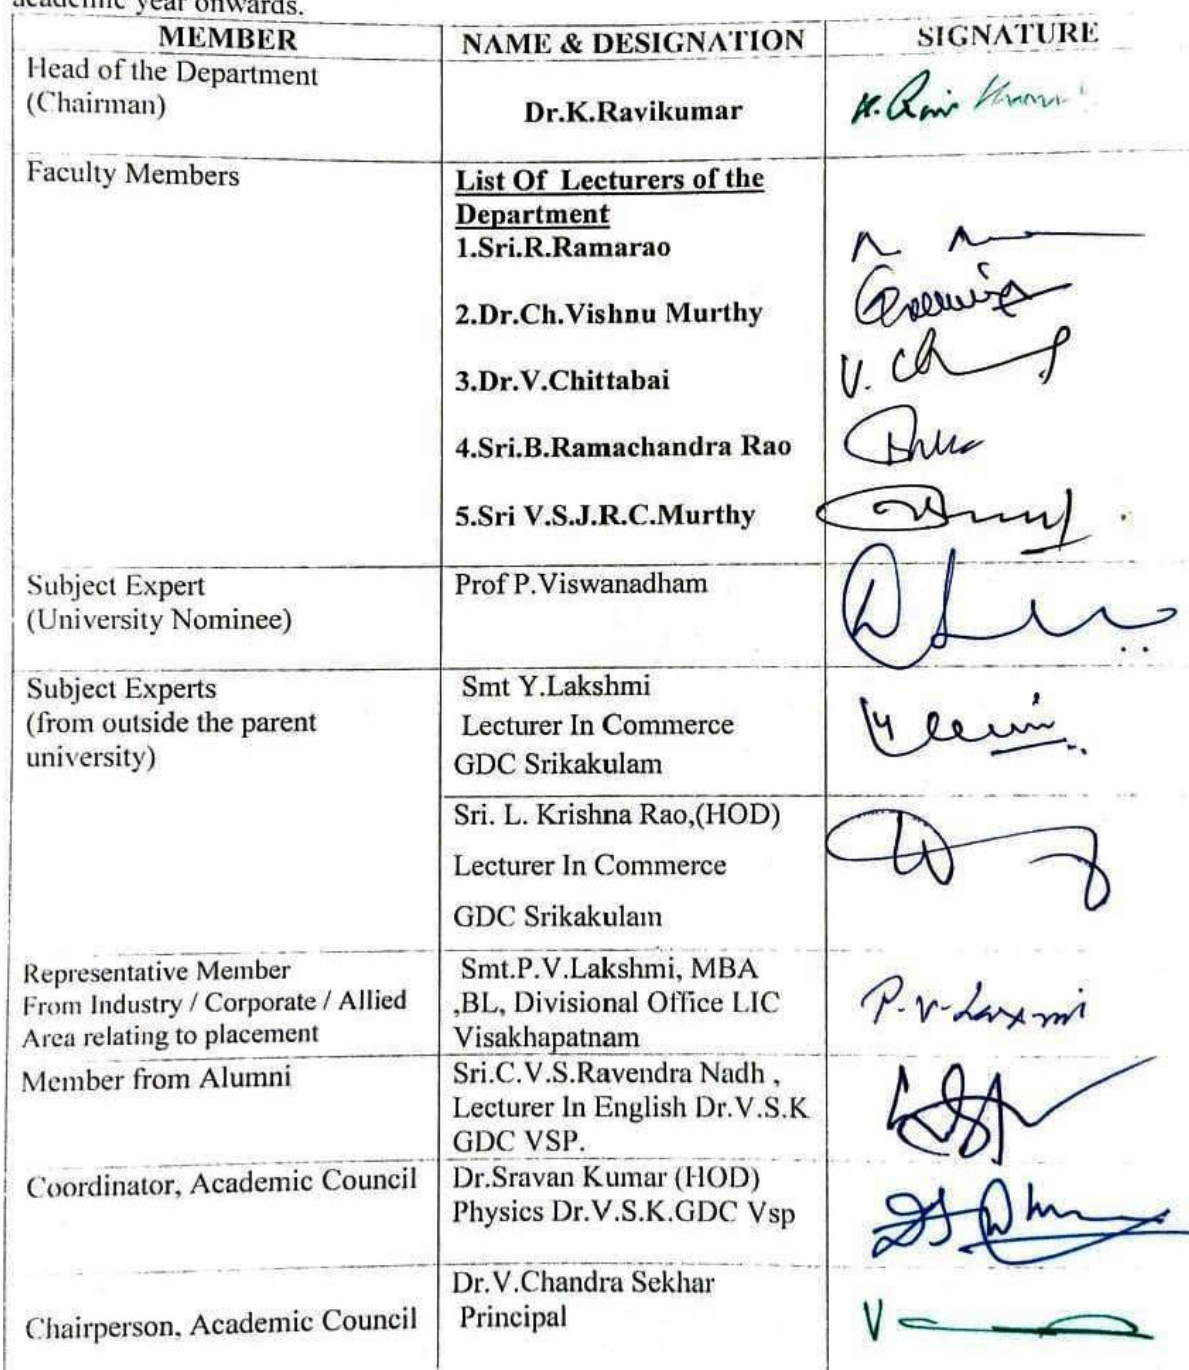 academic year onwards.
MEMBER NAME & DESIGNATION SIGNATURE
Head of the Department
(Chairman)
Dr.K.Ravikumar
K. Ravi Kumar
Faculty Members
List Of Lecturers of the
Department
1.Sri.R.Ramarao
2.Dr.Ch.Vishnu Murthy
3.Dr.V.Chittabai
V. Ch
4.Sri.B.Ramachandra Rao
5.Sri V.S.J.R.C.Murthy
Subject Expert
(University Nominee)
Prof P.Viswanadham
Subject Experts
(from outside the parent
university)
Smt Y.Lakshmi
Lecturer In Commerce
GDC Srikakulam
Sri. L. Krishna Rao,(HOD)
Lecturer In Commerce
GDC Srikakulam
Representative Member
From Industry / Corporate / Allied
Area relating to placement
Smt.P.V.Lakshmi, MBA
,BL, Divisional Office LIC
Visakhapatnam
P.V-Laxmi
Member from Alumni
Sri.C.V.S.Ravendra Nadh ,
Lecturer In English Dr.V.S.K
GDC VSP.
Coordinator, Academic Council
Dr.Sravan Kumar (HOD)
Physics Dr.V.S.K.GDC Vsp
Chairperson, Academic Council
Dr.V.Chandra Sekhar
Principal
V